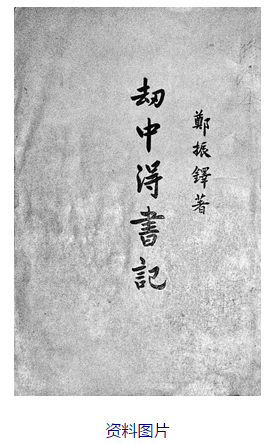 鄭振鐸著
刼中得書記
资料图片